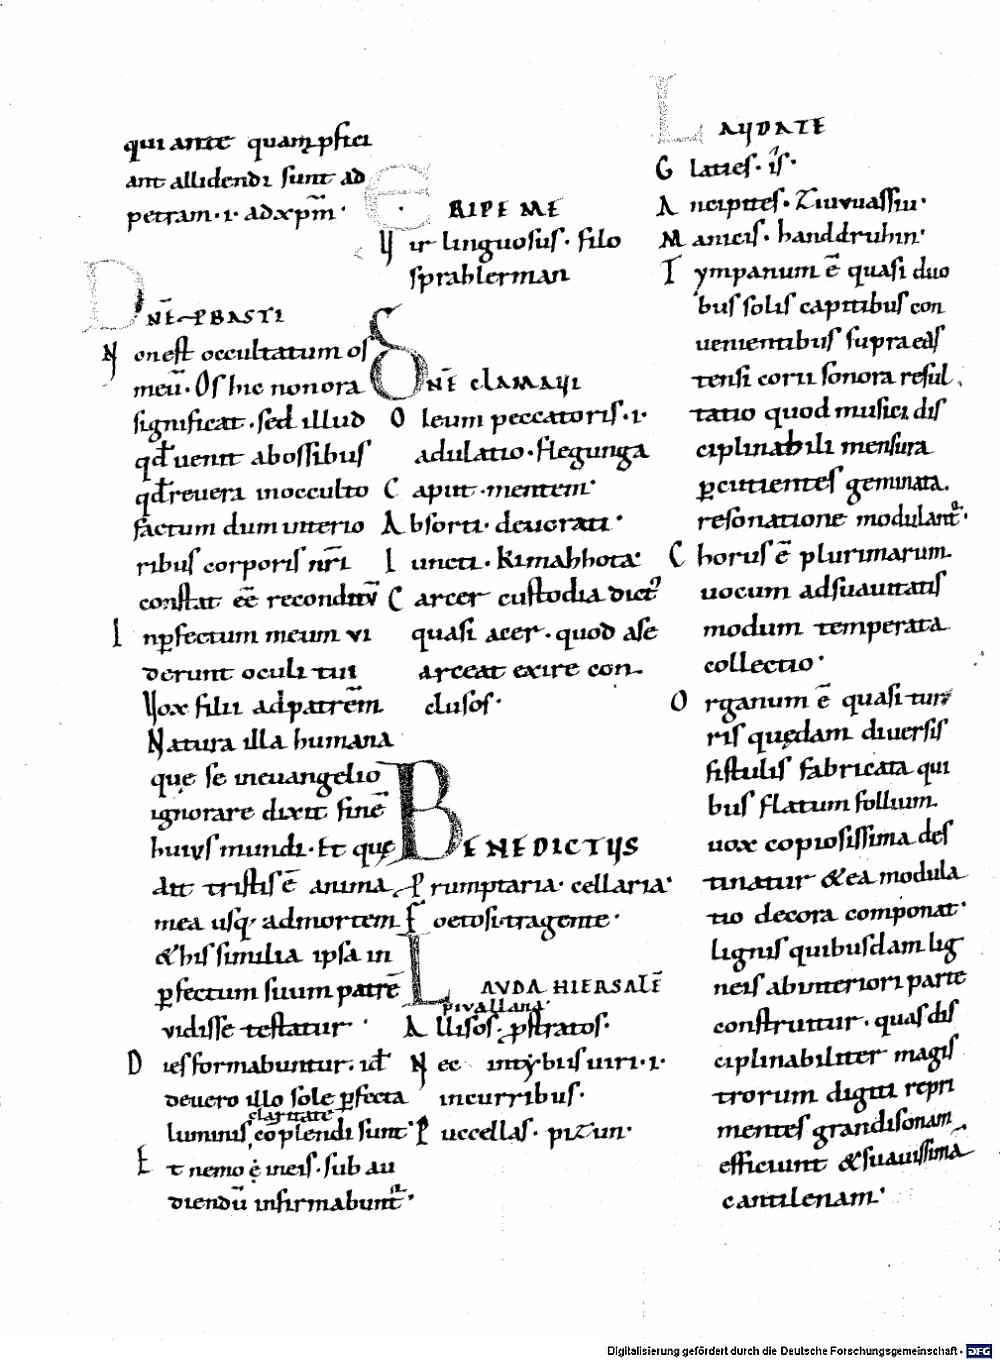 qui ante quam pfici
ant allidendi sunt ad
petram · i · adxp̄m ·
DN̄E PBASTI
Non est occultatum os
meū · Os hic non ora
significat · sed illud
qđ uenit abossibus
qđ reuera inocculto
factum dum interio
ribus corporis nr̄i
constat eē reconditū
Inpfectum meum vi
derunt oculi tui
Vox filii adpatrē m
Natura illa humana
quę se ineuangelio
ignorare dixit finē
huius mundi · Et quę
Ait tristis ē anima
mea usq; admortem
& his similia ipsa in
pfectum suum patrē
vidisse testatur ·
Dies formabuntur · id̄
deuero illo sole pfecta
claritate
luminis, cōplendi sunt ·
Et nemo ė ineis · sub au
diendū infirmabunt᷑ ·
ERIPE ME
Vir linguosus · filo
sprahlerman
DOn̄E CLAMAVI
Oleum peccatoris · i ·
adulatio · flegunga
Caput · mentem ·
Absorti · deuorati ·
Iuncti · kimahhota ·
Carcer custodia dict᷑
quasi acer · quod ase
arceat exire con
clusos ·
BENEDICTUS
Prumptaria · cellaria ·
Foetosi · tragente ·
LAUDA HIERSALĒ
pivallana ·
Allisos · pstratos ·
Nec intybiis uiri · i ·
incurribus ·
Puccellas · pizun ·
LAUDATE
Glaties · is ·
Ancipites · Zuiuuassiu ·
Manicis · handdruhin ·
Tympanum ē quasi duo
bus solis capitibus con
uenientibus supra eds
tensi corii sonora resul
tatio quod musici dis
ciplinabili mensura
pcutientes geminata.
resonatione modulant᷑ ·
Chorus ē plurimarum
uocum adsuauitatis
modum temperata
collectio ·
Organum ē quasi tur
ris quędam diuersis
fistulis fabricata qui
bus flatum follium
uox copiosissima des
tinatur & ea modula
tio decora componat ·
lignis quibusdam lig
neis abinteriori parte
construitur · quas dis
ciplinabiliter magis
trorum digiti repri
mentes grandisonam
efficiunt & suauissimā
cantilenam ·
Digitalisierung gefördert durch die Deutsche Forschungsgemeinschaft - DFG